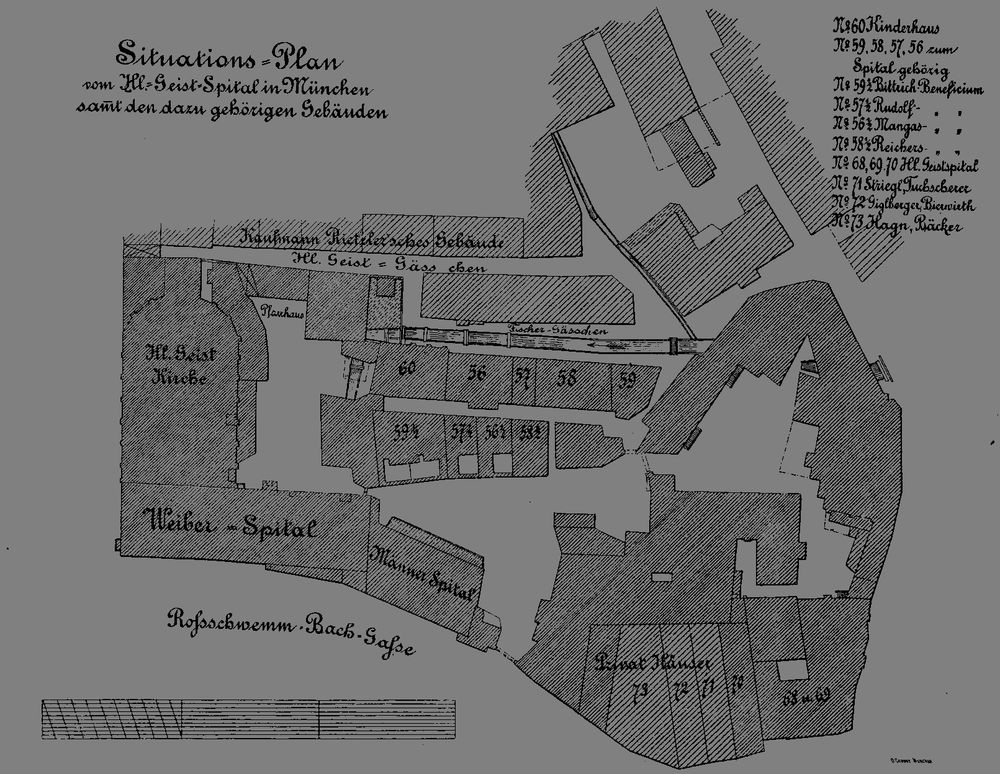 Situations=Plan
vom Hl.=Geist=Spital in München
sam̅t den dazu gehörigen Gebäuden
No. 60 Kinderhaus
No. 59, 58, 57, 56 zum
Spital gehörig
No. 59½ Bittrich-Beneficium
No. 57½ Rudolf- " "
No. 56½ Mangas- " "
No. 58½ Reichers- " "
No. 68, 69, 70 Hl. Geistspital
No. 71 Striegl, Tuchscherer
No. 72 Giglberger, Bierwirth
No. 73 Hagn, Bäcker
Kaufmann Riezler'sches Gebäude
Hl. Geist = Gäss chen
Pfarrhaus
Fischer-Gässchen
Hl. Geist
Kirche
60 56 57 58 59
59½ 57½ 56½ 58½
Weiber = Spital
Männer Spital
Rofsschwemm-Bach-Gafse
Privat Häuser
73 72 71 70
68 u. 69